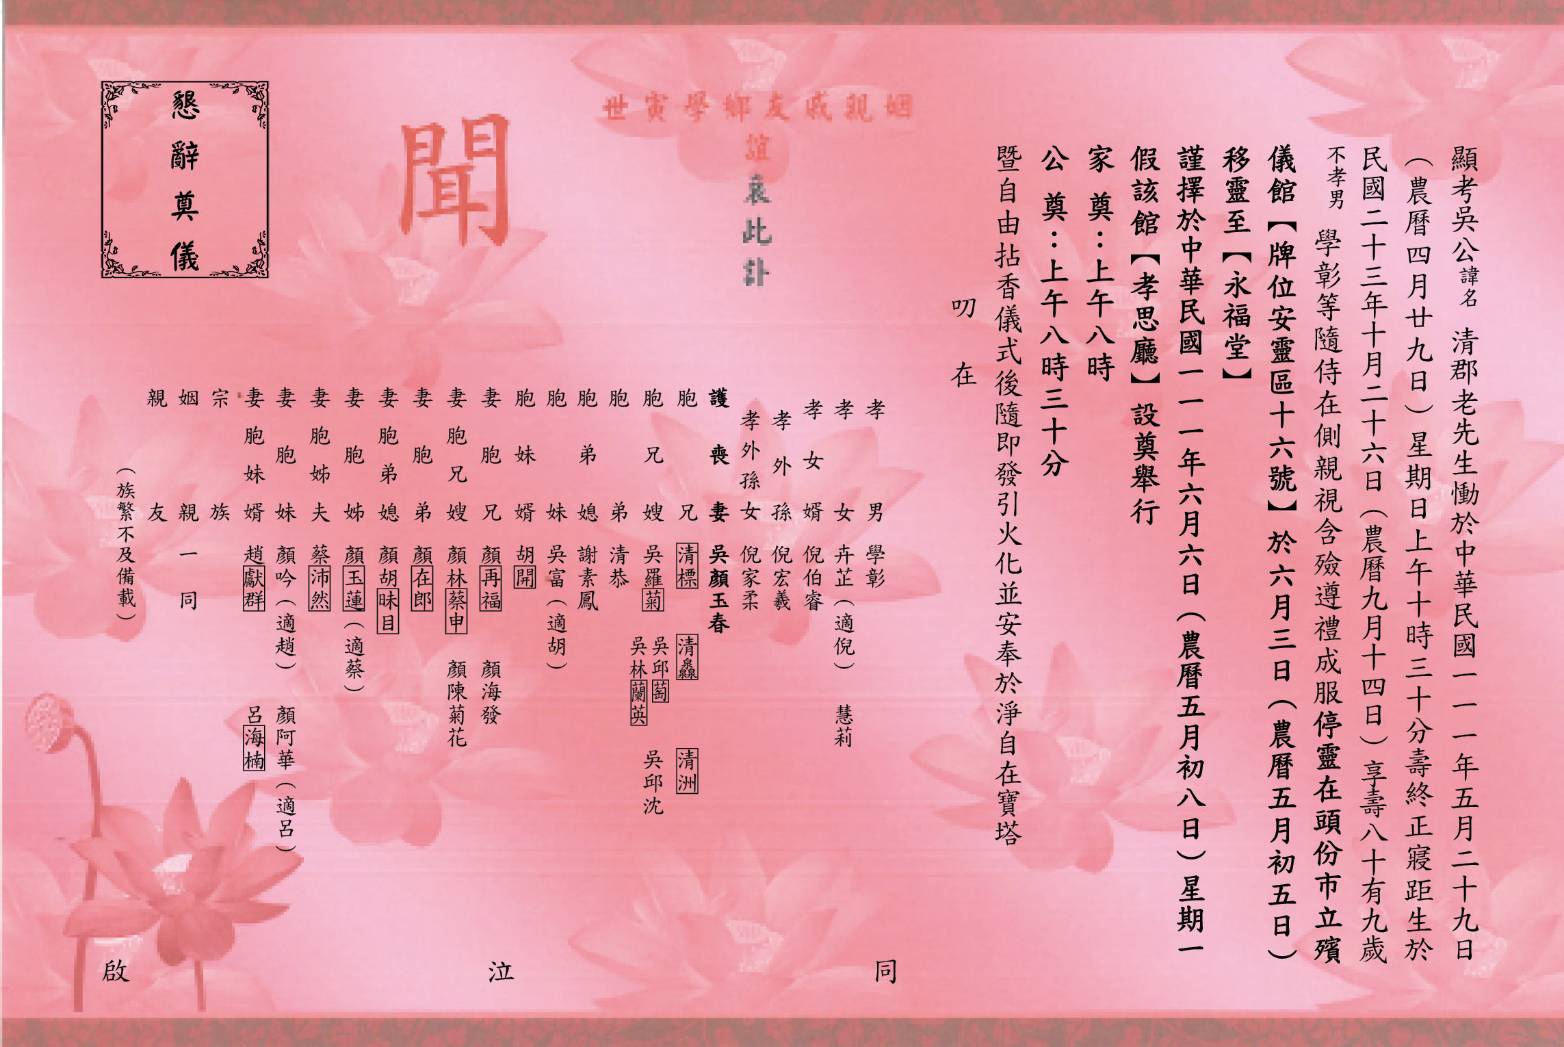 顯考吳公諱名 清郡老先生慟於中華民國一一一年五月二十九日
（農曆四月廿九日）星期日上午十時三十分壽終正寢距生於
民國二十三年十月二十六日（農曆九月十四日）享壽八十有九歲
不孝男 學彰等隨侍在側親視含殮遵禮成服停靈在頭份市立殯
儀館【牌位安靈區十六號】於六月三日（農曆五月初五日）
移靈至【永福堂】
謹擇於中華民國一一一年六月六日（農曆五月初八日）星期一
假該館【孝思廳】設奠舉行
家奠：上午八時
公奠：上午八時三十分
暨自由拈香儀式後隨即發引火化並安奉於淨自在寶塔
叨在
姻親戚友鄉學寅世
誼哀此訃
聞
懇辭奠儀
孝男 學彰
孝女 卉芷（適倪） 慧莉
孝女婿 倪伯睿
孝外孫 倪宏義
孝外孫女 倪家柔
護喪妻 吳顏玉春
胞兄 清標 清灥 清洲
胞兄嫂 吳羅菊 吳邱萄 吳林蘭英 吳邱沈
胞弟 清恭
胞弟媳 謝素鳳
胞妹 吳富（適胡）
胞妹婿 胡開
妻胞兄 顏再福 顏海發
妻胞兄嫂 顏林蔡申 顏陳菊花
妻胞弟 顏在郎
妻胞弟媳 顏胡昧目
妻胞姊 顏玉蓮（適蔡）
妻胞姊夫 蔡沛然
妻胞妹 顏吟（適趙） 顏阿華（適呂）
妻胞妹婿 趙獻群 呂海楠
宗族
姻親一同
親友
（族繁不及備載）
同泣啟